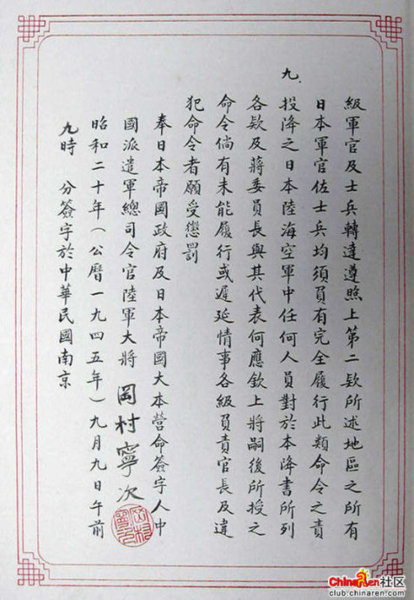 級軍官及士兵轉達遵照上第二款所述地區之所有
日本軍官佐士兵均須負有完全履行此類命令之責
九.投降之日本陸海空軍中任何人員對於本降書所列
各款及蔣委員長與其代表何應欽上將嗣後所授之
命令倘有未能履行或遲延情事各級負責官長及違
犯命令者願受懲罰
奉日本帝國政府及日本帝國大本營命簽字人中
國派遣軍總司令官陸軍大將 岡村寧次
昭和二十年(公曆一九四五年)九月九日午前
九時 分簽字於中華民國南京
ChinaRen社区
club.chinaren.com